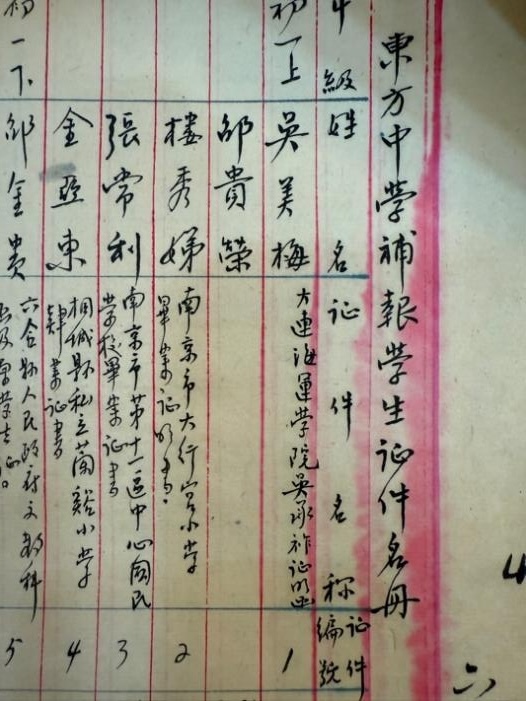 東方中学補報学生证件名册
年級 姓名 证件名称 证件編號
初一上 吴美梅 大連海運学院吴承祚证明函 1
邰貴榮
樓秀娣 南京市大行宫小学
畢業证明書. 2
張常利 南京市第十一區中心國民
学校畢業证書 3
金亞東 桐城縣私立蘭谿小学
肄業证書 4
初一下 邰金貴 六合縣人民政府文教科 5
4
六